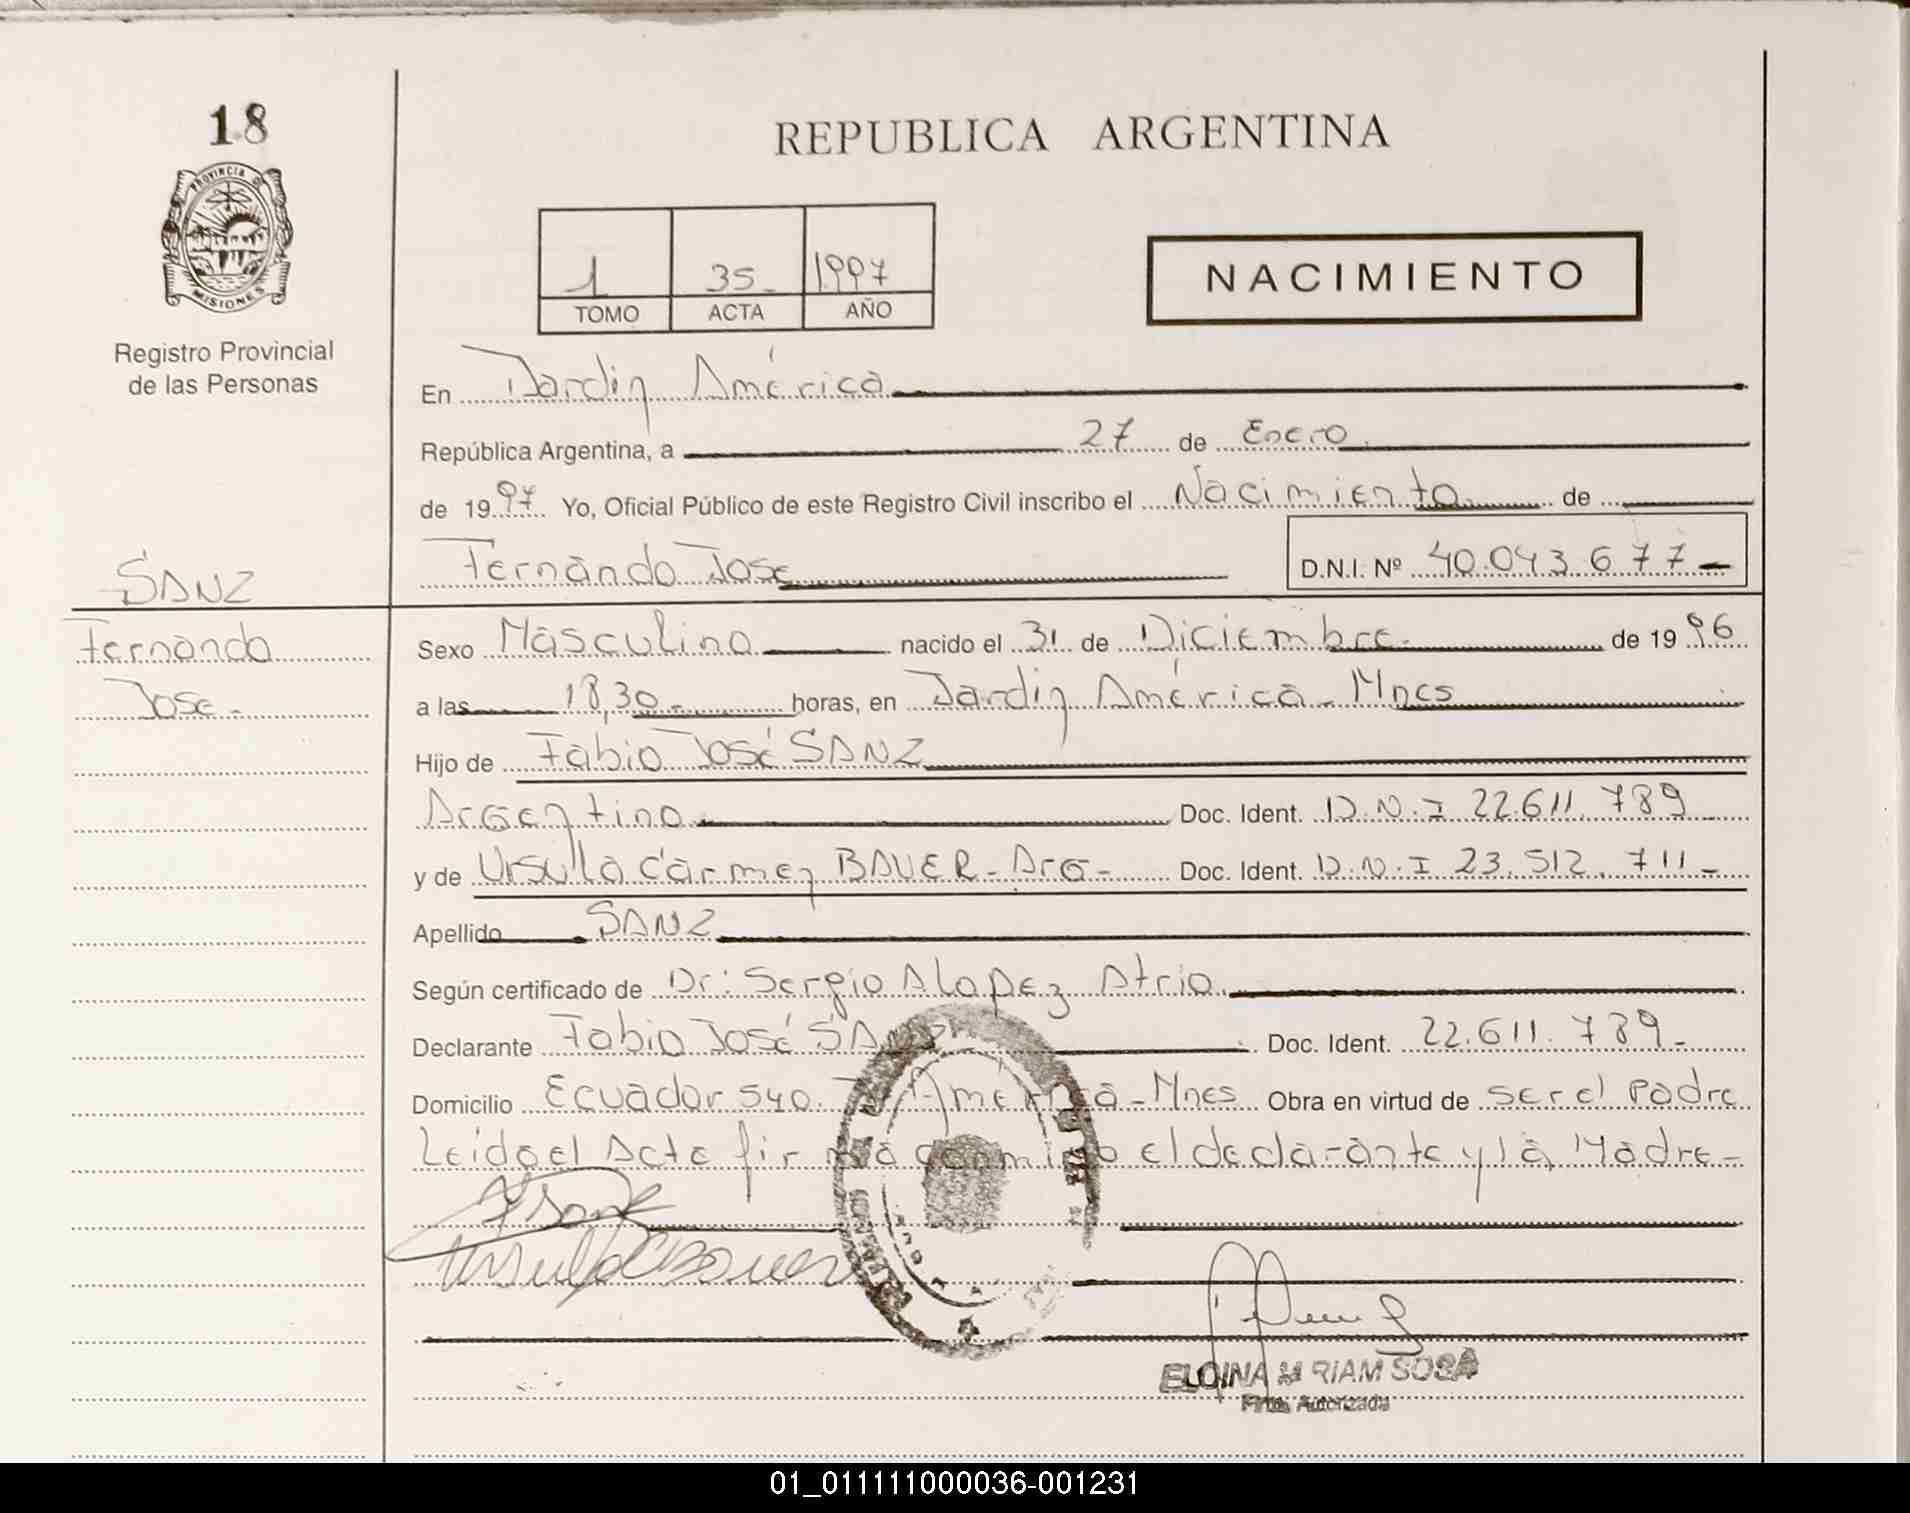 18
PROVINCIA DE
MISIONES
Registro Provincial
de las Personas
SANZ
Fernando
Jose -
REPUBLICA ARGENTINA
1 35 1997
TOMO ACTA AÑO
NACIMIENTO
En Jardin América
República Argentina, a 27 de Enero
de 1997 Yo, Oficial Público de este Registro Civil inscribo el Nacimiento de
Fernando Jose D.N.I. Nº 40.043.677-
Sexo Masculino nacido el 31 de Diciembre de 1996
a las 18,30 horas, en Jardin América - Mnes
Hijo de Fabio José SANZ
Argentino Doc. Ident. D.N.I 22.611.789
y de Ursula Carmen BAUER - Arg - Doc. Ident. D.N.I 23.512.711-
Apellido SANZ
Según certificado de Dr: Sergio A Lopez Atrio
Declarante Fabio José SANZ Doc. Ident. 22.611.789-
Domicilio Ecuador 540. J. América - Mnes Obra en virtud de ser el Padre
Leido el Acta firma conmigo el declarante y la Madre -
ELOINA MIRIAM SOSA
Autorizada
01_011111000036-001231